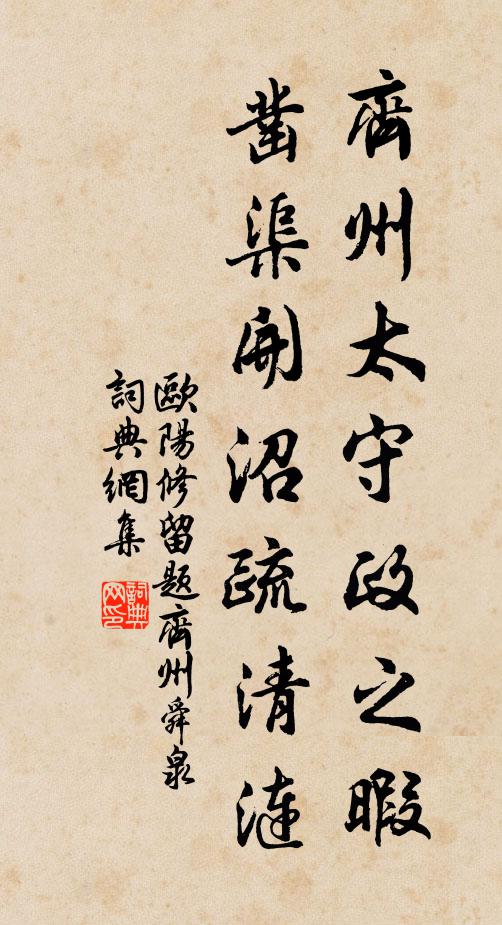 齊州太守政之暇
鑿渠開沼疏清漣
歐陽修留題齊州舜泉
詞典網集
詞典網印